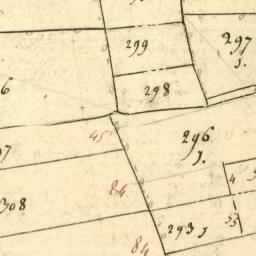 299
297
J.
298
6
45
296
J.
07
84
4
308
293 J
33
84